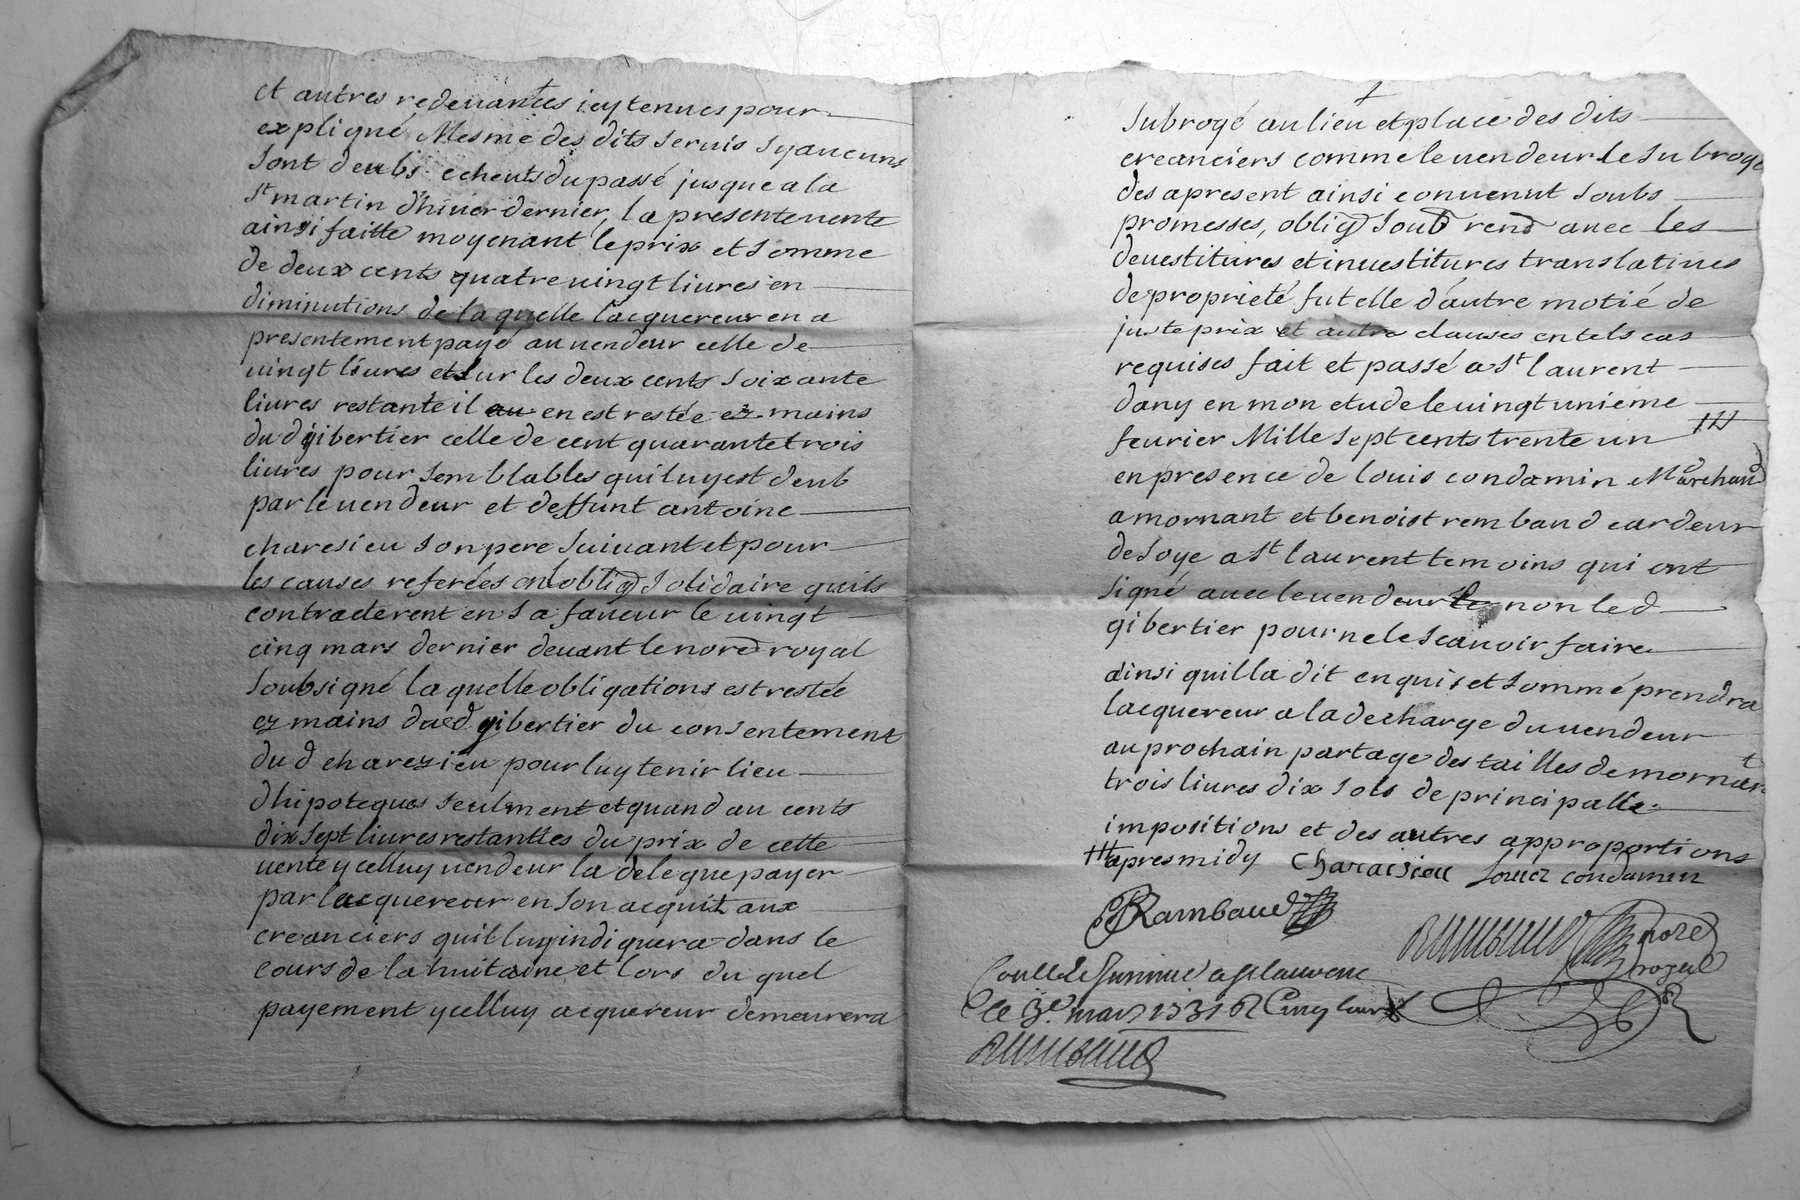 et autres redeuances icy tenues pour
expligné Mesme des dits seruis sy aucuns
sont deubs echeuts du passé jusque a la
st martin d'hiuer dernier, la presente uente
ainsi faitte moyenant le prix et somme
de deux cents quatre uingt liures en
diminutions de la quelle lacquereur en a
presentement payé au uendeur celle de
uingt liures et sur les deux cents soixante
liures restante il au en est restée ez mains
du d gibertier celle de cent quarante trois
liures pour semblables qui luy est deub
par le uendeur et deffunt antoine
charesieu son pere suiuant et pour
les causes referées en lobligõ solidaire quils
contracterent en sa faueur le uingt
cinq mars dernier deuant le nore royal
soubsigné la quelle obligations est restée
ez mains dud gibertier du consentement
du d charezieu pour luy tenir lieu
dhipoteques seulment et quand au cents
dix sept liures restantes du prix de cette
uente ycelluy uendeur la delegue payer
par lacquereur en son acquit aux
creanciers quil luy indiquera dans le
cours de la huitaine et lors du quel
payement ycelluy acquereur demeurera
subrogé au lieu et place des dits
creanciers comme le uendeur le subroge
des apresent ainsi conuenut soubs
promesses, obligõ soub rend auec les
deuestitures et inuestitures translatiues
de proprieté fut elle d'autre motié de
juste prix et autre clauses en tels cas
requises fait et passé a st laurent
dany en mon etude le uingt unieme
feurier Mille sept cents trente un ///
en presence de louis condamin Marchand
a mornant et benoist rembaud cardeur
de soye a st laurent temoins qui ont
signé auec le uendeur non led
gibertier pour ne le scauoir faire
ainsi quilla dit enquis et sommé prendra
lacquereur a la decharge du uendeur
au prochain partage des tailles de mornant
trois liures dix sols de principalle
impositions et des autres approportions
/// apres midy Charaisieu Louiez condamin
Rambaud
nore
royal
le 3e mars 1731